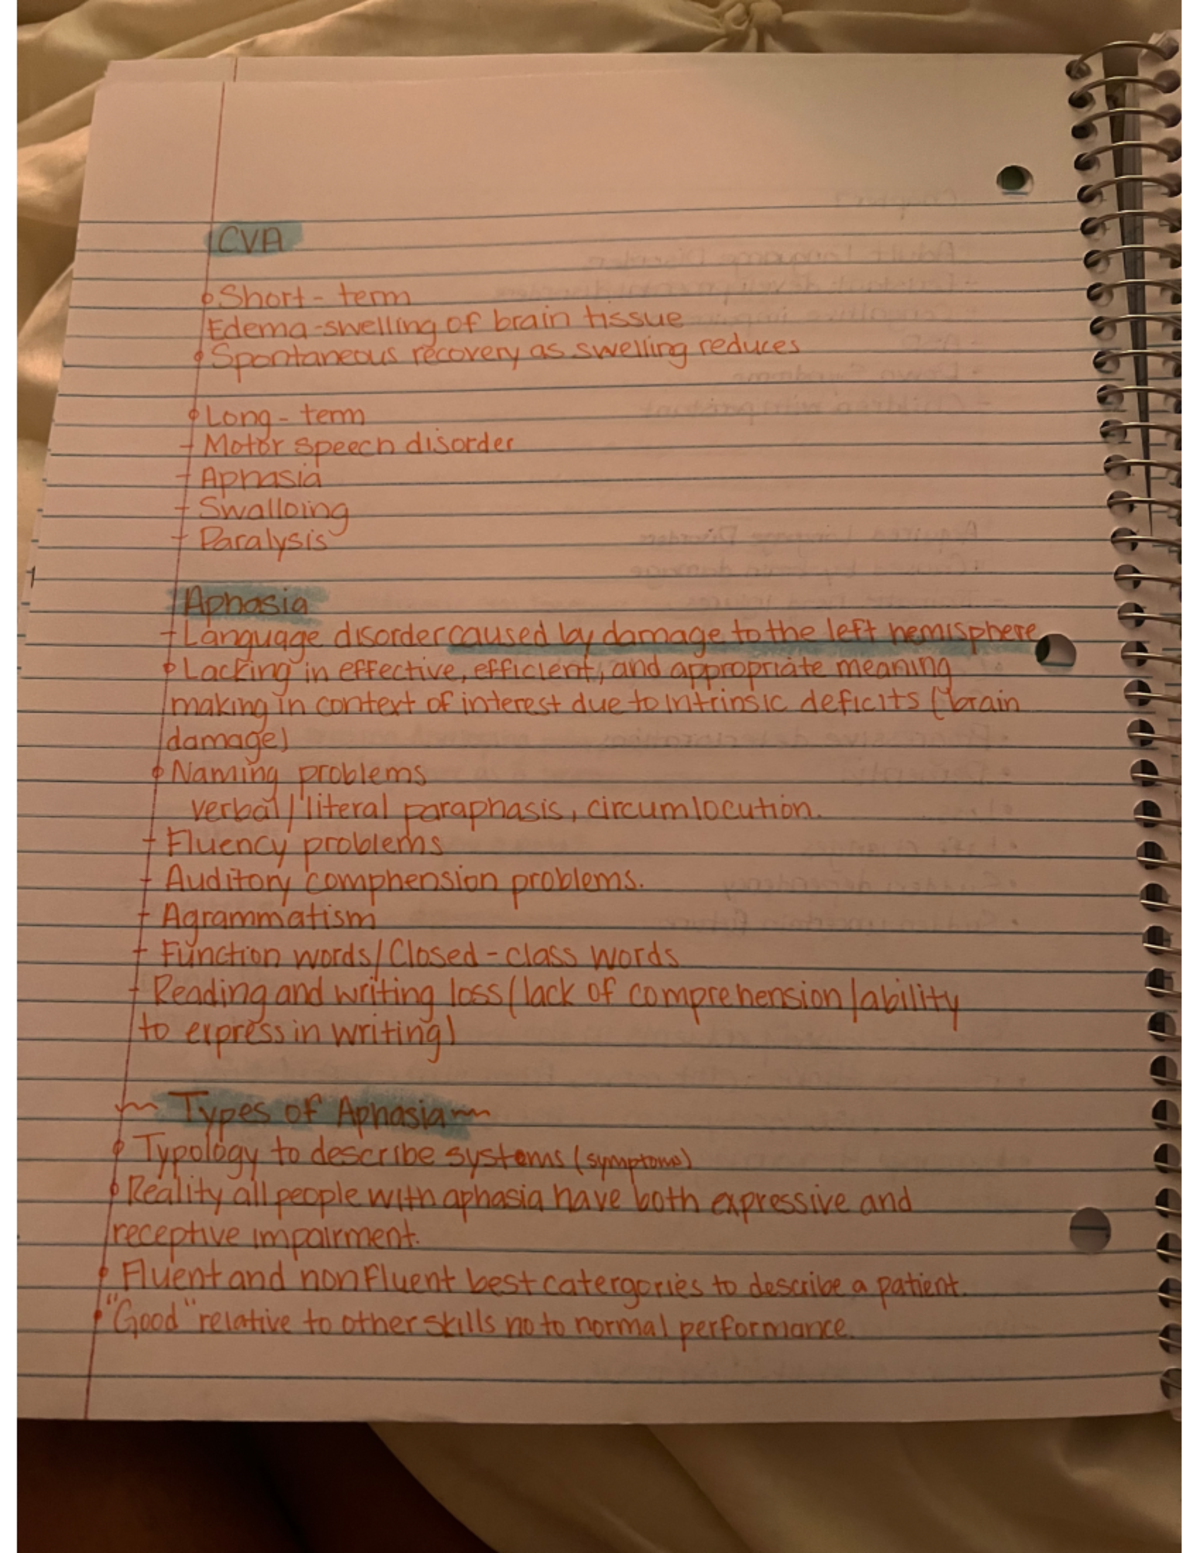 CVA
Short-term
Edema-swelling of brain tissue
Spontaneous recovery as swelling reduces
Long-term
- Motor speech disorder
- Aphasia
- Swalloing
- Paralysis
Aphasia
- Language disorder caused by damage to the left hemisphere
Lacking in effective, efficient, and appropriate meaning
making in context of interest due to intrinsic deficits (brain
damage)
Naming problems
verbal/literal paraphasis, circumlocution.
- Fluency problems
- Auditory comphension problems.
- Agrammatism
- Function words/Closed-class words
- Reading and writing loss (lack of comprehension/ability
to express in writing)
~ Types of Aphasia ~
Typology to describe systems (symptoms)
Reality all people with aphasia have both expressive and
receptive impairment.
Fluent and nonfluent best catergories to describe a patient.
"Good" relative to other skills no to normal performance.